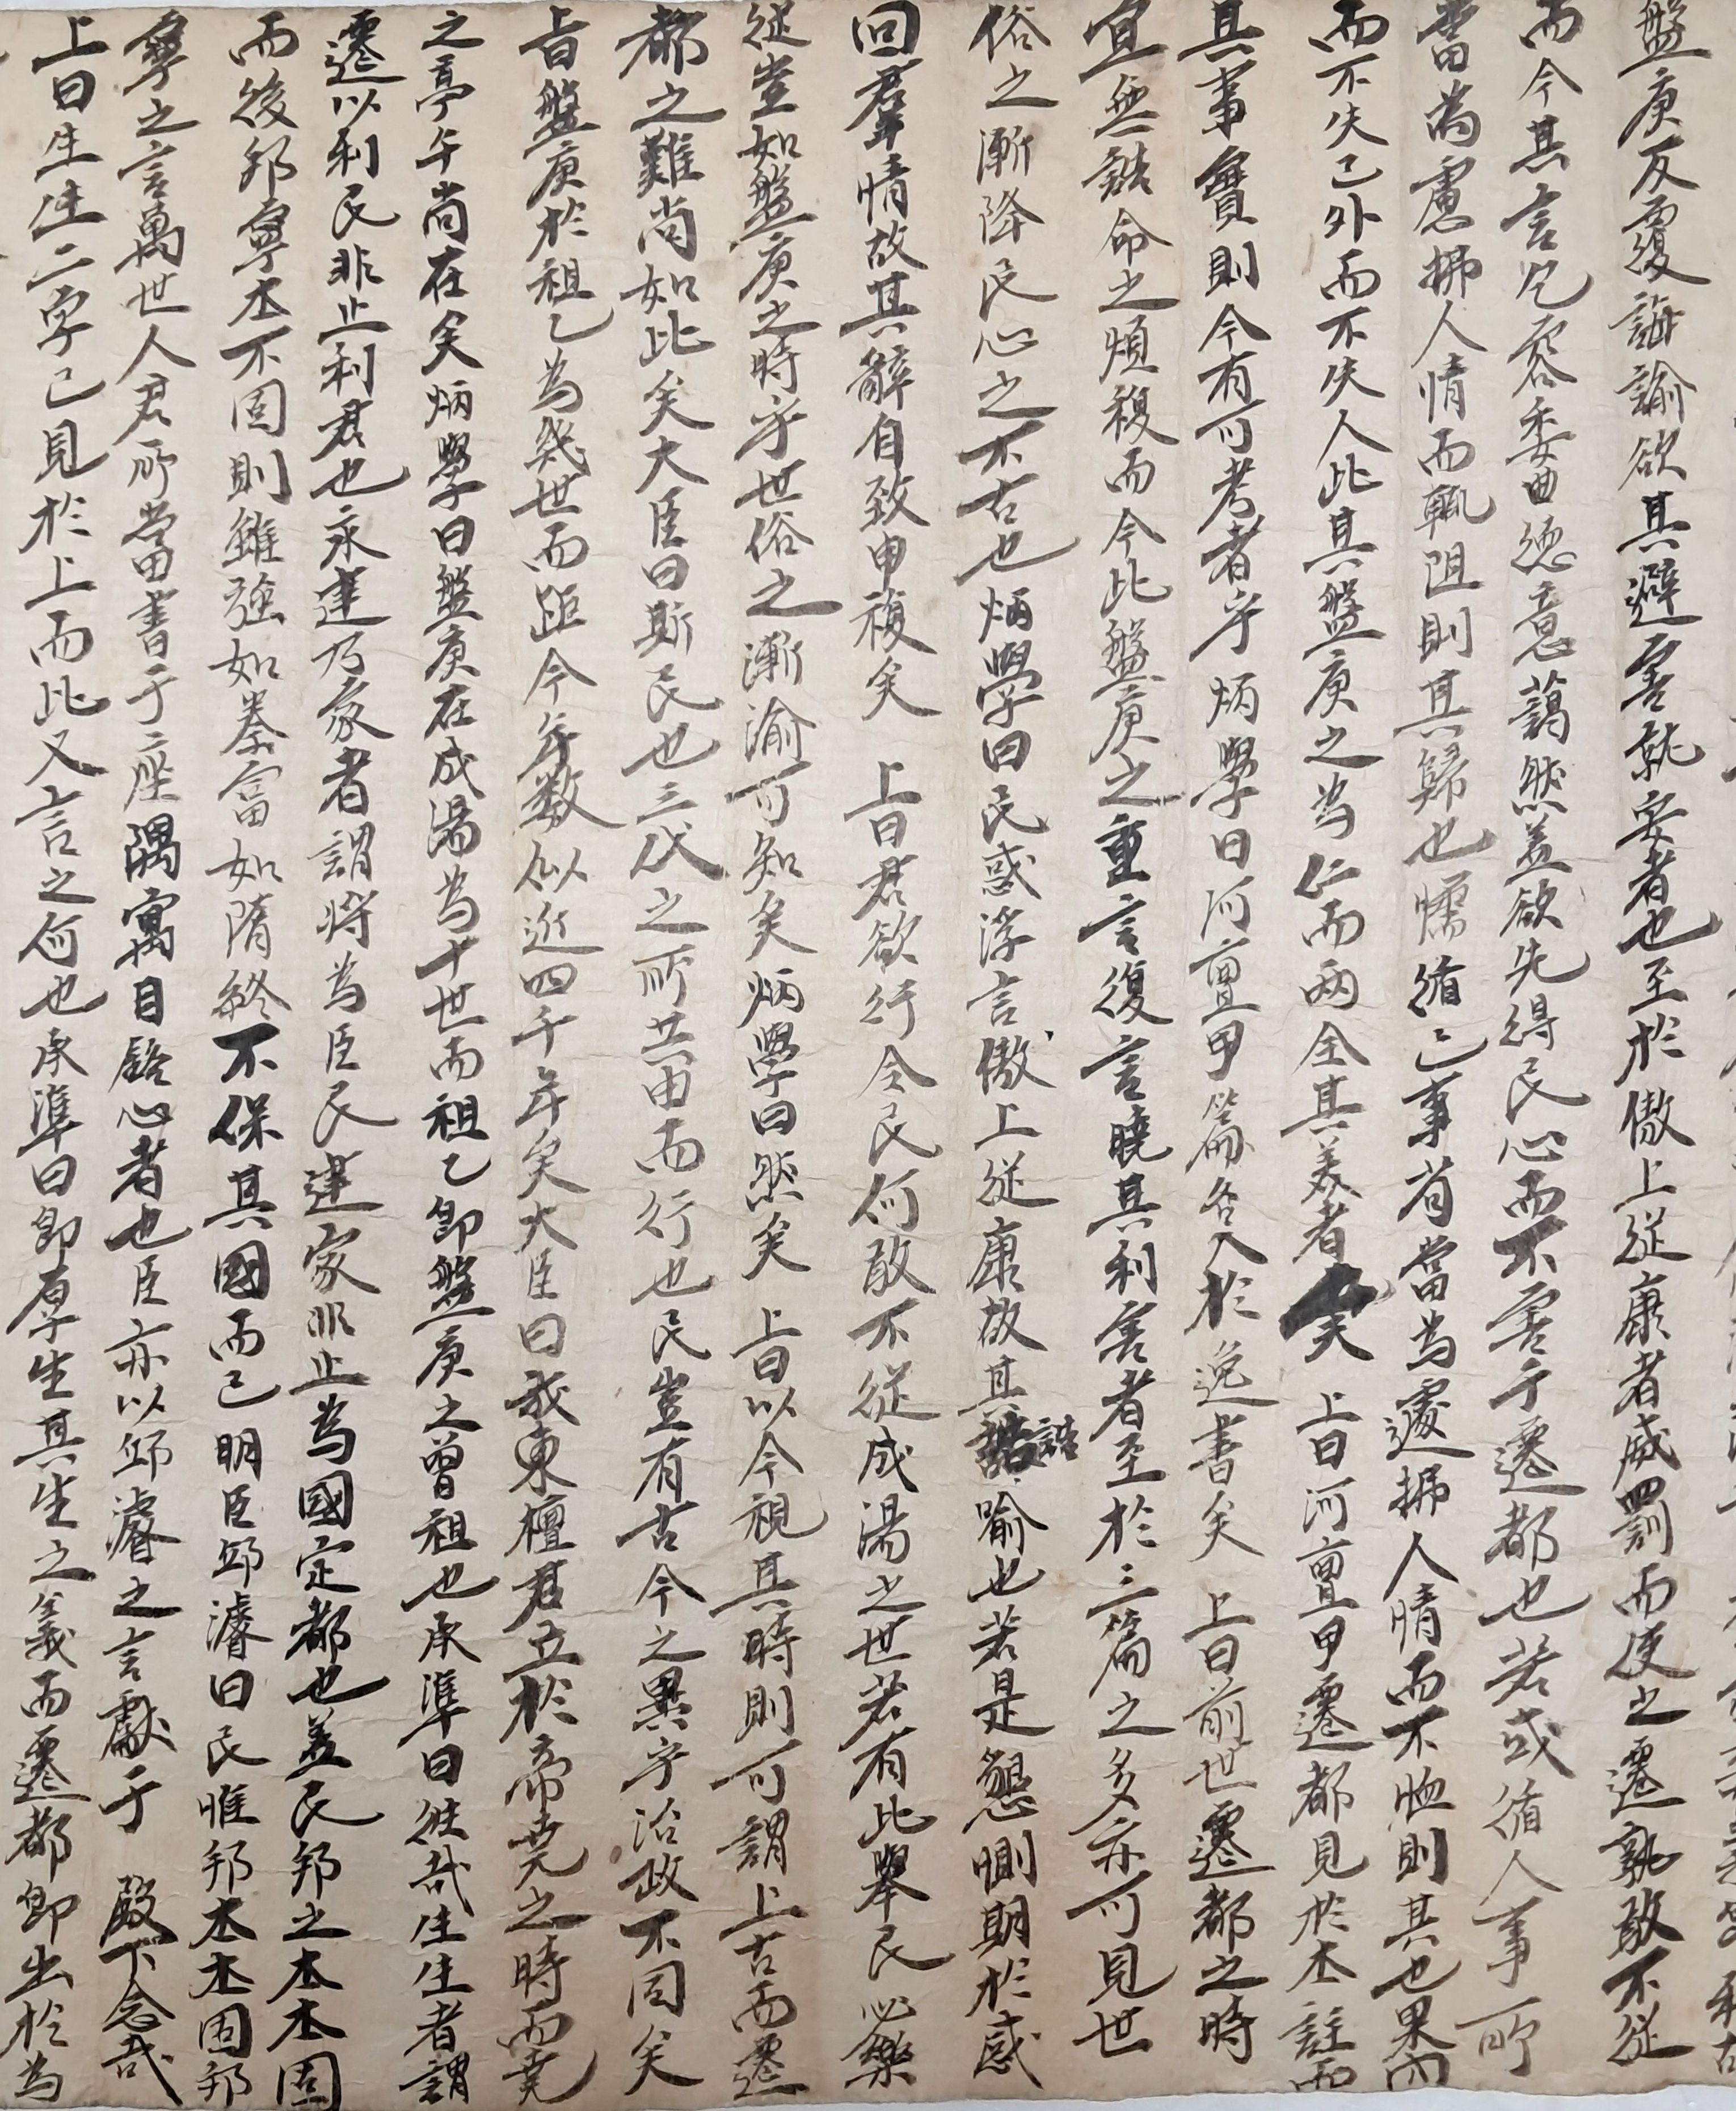 盤庚反覆誨諭欲其避害就安者也至於傲上從康者威罰而使之遷孰敢不從
而今其言乞容委曲德意藹然盖欲先得民心而不害于遷都也若或循人事所
當為慮拂人情而輒阻則其歸也懦循己事者當為遽拂人情而不恤則其也果而
而不失己外而不失人此其盤庚之為仁而兩全其美者矣 上曰河亶甲遷都見於本註而
其事實則今有可考者乎炳學曰河亶甲篇名入於逸書矣 上曰前世遷都之時
宜無誥命之煩複而今此盤庚之重言復言曉其利害者至於三篇之多亦可見世
俗之漸降民心之不古也炳學曰民惑浮言傲上從康故其誥喻也若是懇惻期於感
回羣情故其辭自致申複矣 上曰君欲行令民何敢不從成湯之世若有此擧民必樂
從豈如盤庚之時乎世俗之漸渝可知矣炳學曰然矣 上曰以今視其時則可謂上古而遷
都之難尚如此矣大臣曰斯民也三代之所共由而行也民豈有古今之異乎治政不同矣
上曰盤庚於祖乙為幾世而距今年数似近四千年矣大臣曰我東檀君立於帝堯之時而堯
之亭午尚在矣炳學曰盤庚在成湯為十世而祖乙卽盤庚之曾祖也承準曰徃哉生生者謂
遷以利民非止利君也永建乃家者謂將為臣民建家非止為國定都也盖民邦之本本固
而後邦寧本不固則雖强如秦富如隋終不保其國而已明臣邱濬曰民惟邦本本固邦
寧之言萬世人君所當書于座隅寓目銘心者也臣亦以邱濬之言獻于 殿下念哉
上曰生生二字已見於上而此又言之何也承準曰卽厚生其生之義而遷都卽出於為